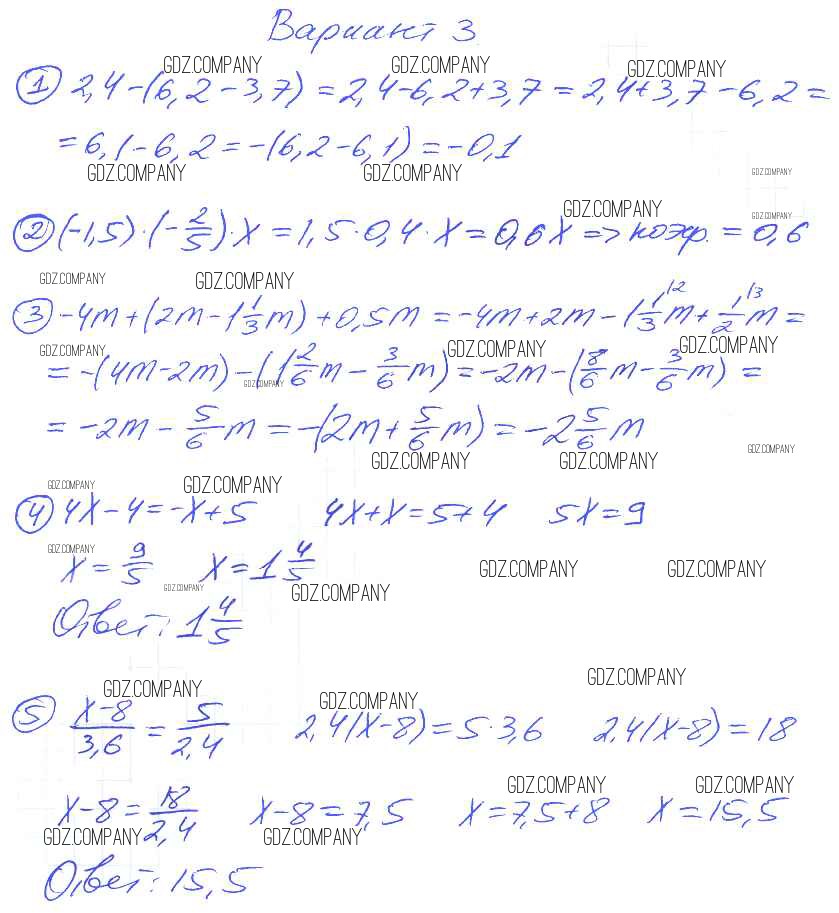 Вариант 3
GDZ.COMPANY GDZ.COMPANY GDZ.COMPANY
① 2,4-(6,2-3,7)=2,4-6,2+3,7=2,4+3,7-6,2=
=6,1-6,2=-(6,2-6,1)=-0,1
GDZ.COMPANY GDZ.COMPANY GDZ.COMPANY
GDZ.COMPANY GDZ.COMPANY
② (-1,5)·(-2/5)·x=1,5·0,4·x=0,6x=>коэф.=0,6
GDZ.COMPANY GDZ.COMPANY
③ -4m+(2m-1 1/3m)+0,5m=-4m+2m-1 1/3\2m+1/2\3m=
GDZ.COMPANY GDZ.COMPANY GDZ.COMPANY
=-(4m-2m)-(1 2/6m-3/6m)=-2m-(8/6m-3/6m)=
GDZ.COMPANY
=-2m-5/6m=-(2m+5/6m)=-2 5/6m
GDZ.COMPANY GDZ.COMPANY GDZ.COMPANY
GDZ.COMPANY GDZ.COMPANY
④ 4x-4=-x+5 4x+x=5+4 5x=9
GDZ.COMPANY
x=9/5 x=1 4/5
GDZ.COMPANY GDZ.COMPANY
GDZ.COMPANY GDZ.COMPANY
Ответ: 1 4/5
GDZ.COMPANY GDZ.COMPANY GDZ.COMPANY
⑤ x-8/3,6=5/2,4 2,4(x-8)=5·3,6 2,4(x-8)=18
GDZ.COMPANY GDZ.COMPANY
x-8=18/2,4 x-8=7,5 x=7,5+8 x=15,5
GDZ.COMPANY GDZ.COMPANY
Ответ: 15,5